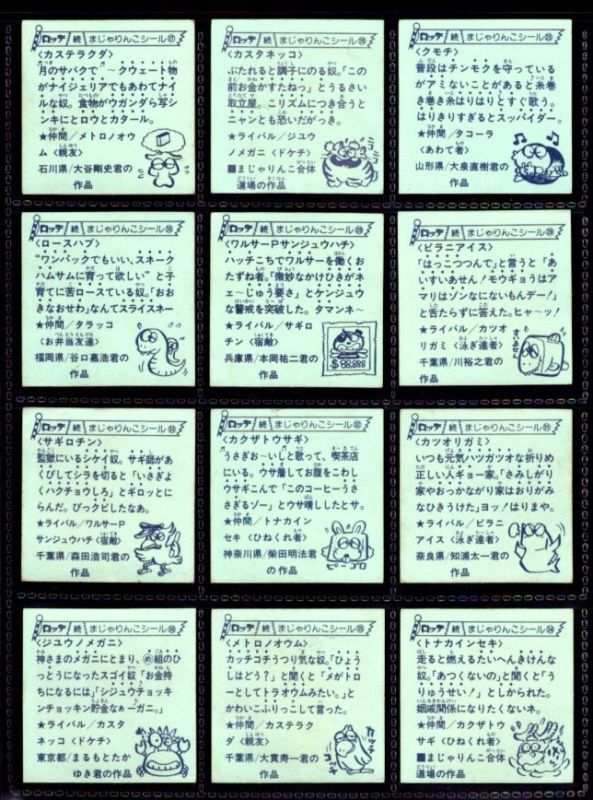 ロッテ 続 まじゃりんこシール㉗
〈カステラクダ〉
月のサバクで〜クウェート物
がナイジェリアでもあわてナイ
ルな奴。食物がウガンダら写シ
ンキにとロウとカタール。
★仲間/メトロノオウ
ム〈親友〉
石川県/大谷剛史君の
作品
ロッテ 続 まじゃりんこシール㉖
〈カスタネッコ〉
ぶたれると調子にのる奴。「この
前お金かすたねっ」とうるさい
取立屋。こリズムにつき合うと
ニャンとも恐いだがっき。
★ライバル/ジュウ
ノメガニ〈ドケチ〉
■まじゃりんこ合体
道場の作品
ロッテ 続 まじゃりんこシール㉕
〈クモチ〉
普段はチンモクを守っている
がアミないことがあると糸巻
き巻き糸はりはりとすぐ歌う。
はりきりすぎるとスッパイダー。
★仲間/タコーラ
〈あわて者〉
山形県/大泉直樹君の
作品
ロッテ 続 まじゃりんこシール㉚
〈ロースハブ〉
"ワンパックでもいい、スネーク
ハムサムに育って欲しい"と子
育てに苦ロースている奴。「おお
きなおせわ」なんてスライスネー
★仲間/タラッコ
〈お弁当友達〉
福岡県/谷口嘉浩君の
作品
ロッテ 続 まじゃりんこシール㉙
〈ワルサーPサンジュウハチ〉
ハッチこちでワルサーを働くお
たずね者。「微妙なかけひきがネ
ェ〜じゅう要さ」とケンジュウ
な警戒を突破した。タマンネ〜
★ライバル/サギロ
チン〈宿敵〉
兵庫県/本岡祐二君の
作品
$98,888
ロッテ 続 まじゃりんこシール㉘
〈ピラニアイス〉
「はっこつつんで」と言うと「あ
いすいあせん!モウギョうは
アマリはゾンなにないもんデー!」
と舌たらずに答えた。ヒャ〜ッ!
★ライバル/カツオ
リガミ〈泳ぎ達者〉
千葉県/川裕之君の
作品
ロッテ 続 まじゃりんこシール㉝
〈サギロチン〉
監獄にいるシケイ奴。サギ師があ
くびしてシラを切ると「いさぎよ
くハクチョウしろ」とギロッとに
らんだ。びっクビしたなあ。
★ライバル/ワルサーP
サンジュウハチ〈宿敵〉
千葉県/森田浩司君の
作品
ロッテ 続 まじゃりんこシール㉜
〈カクザトウサギ〉
うさぎお〜いしと歌って、喫茶店
にいる。ウサ詣してお腹をこわし
ウサギこんで「このコーヒーうさ
さぎるゾー」とウサ晴ししたとサ。
★仲間/トナカイン
セキ〈ひねくれ者〉
神奈川県/柴田明法君
の作品
ピーゴロ
ロッテ 続 まじゃりんこシール㉛
〈カツオリガミ〉
いつも元気ハツガツオな折りめ
正しい人ギョー家。「さみしがり
家やおっかながり家はおりがみ
なひきうけた」ヨッ!はりまや。
★ライバル/ピラニ
アイス〈泳ぎ達者〉
奈良県/知浦太一君の
作品
ロッテ 続 まじゃりんこシール㊱
〈ジュウノメガニ〉
神さまのメガニにとまり、め組のひ
っとうになったスゴイ奴「お金持
ちになるには」「シジュウチョッキ
ンチョッキン貯金なぁーガニ。」
★ライバル/カスタ
ネッコ〈ドケチ〉
東京都/まるもとたか
ゆき君の作品
ロッテ 続 まじゃりんこシール㉟
〈メトロノオウム〉
カッチコチうつり気な奴。「ひょう
しはどう?」と聞くと「メがトロ
ーとしてトラオウムみたい。」と
かわいこぶりっこして言った。
★仲間/カステラク
ダ〈親友〉
千葉県/大貫寿一君の
作品
ロッテ 続 まじゃりんこシール㉞
〈トナカインセキ〉
走ると燃えるたいへんきけんな
奴。「あつくないの」と聞くと「う
りゅうせい!」としかられた。
姻戚関係になりたくないネ。
★仲間/カクザトウ
サギ〈ひねくれ者〉
■まじゃりんこ合体
道場の作品